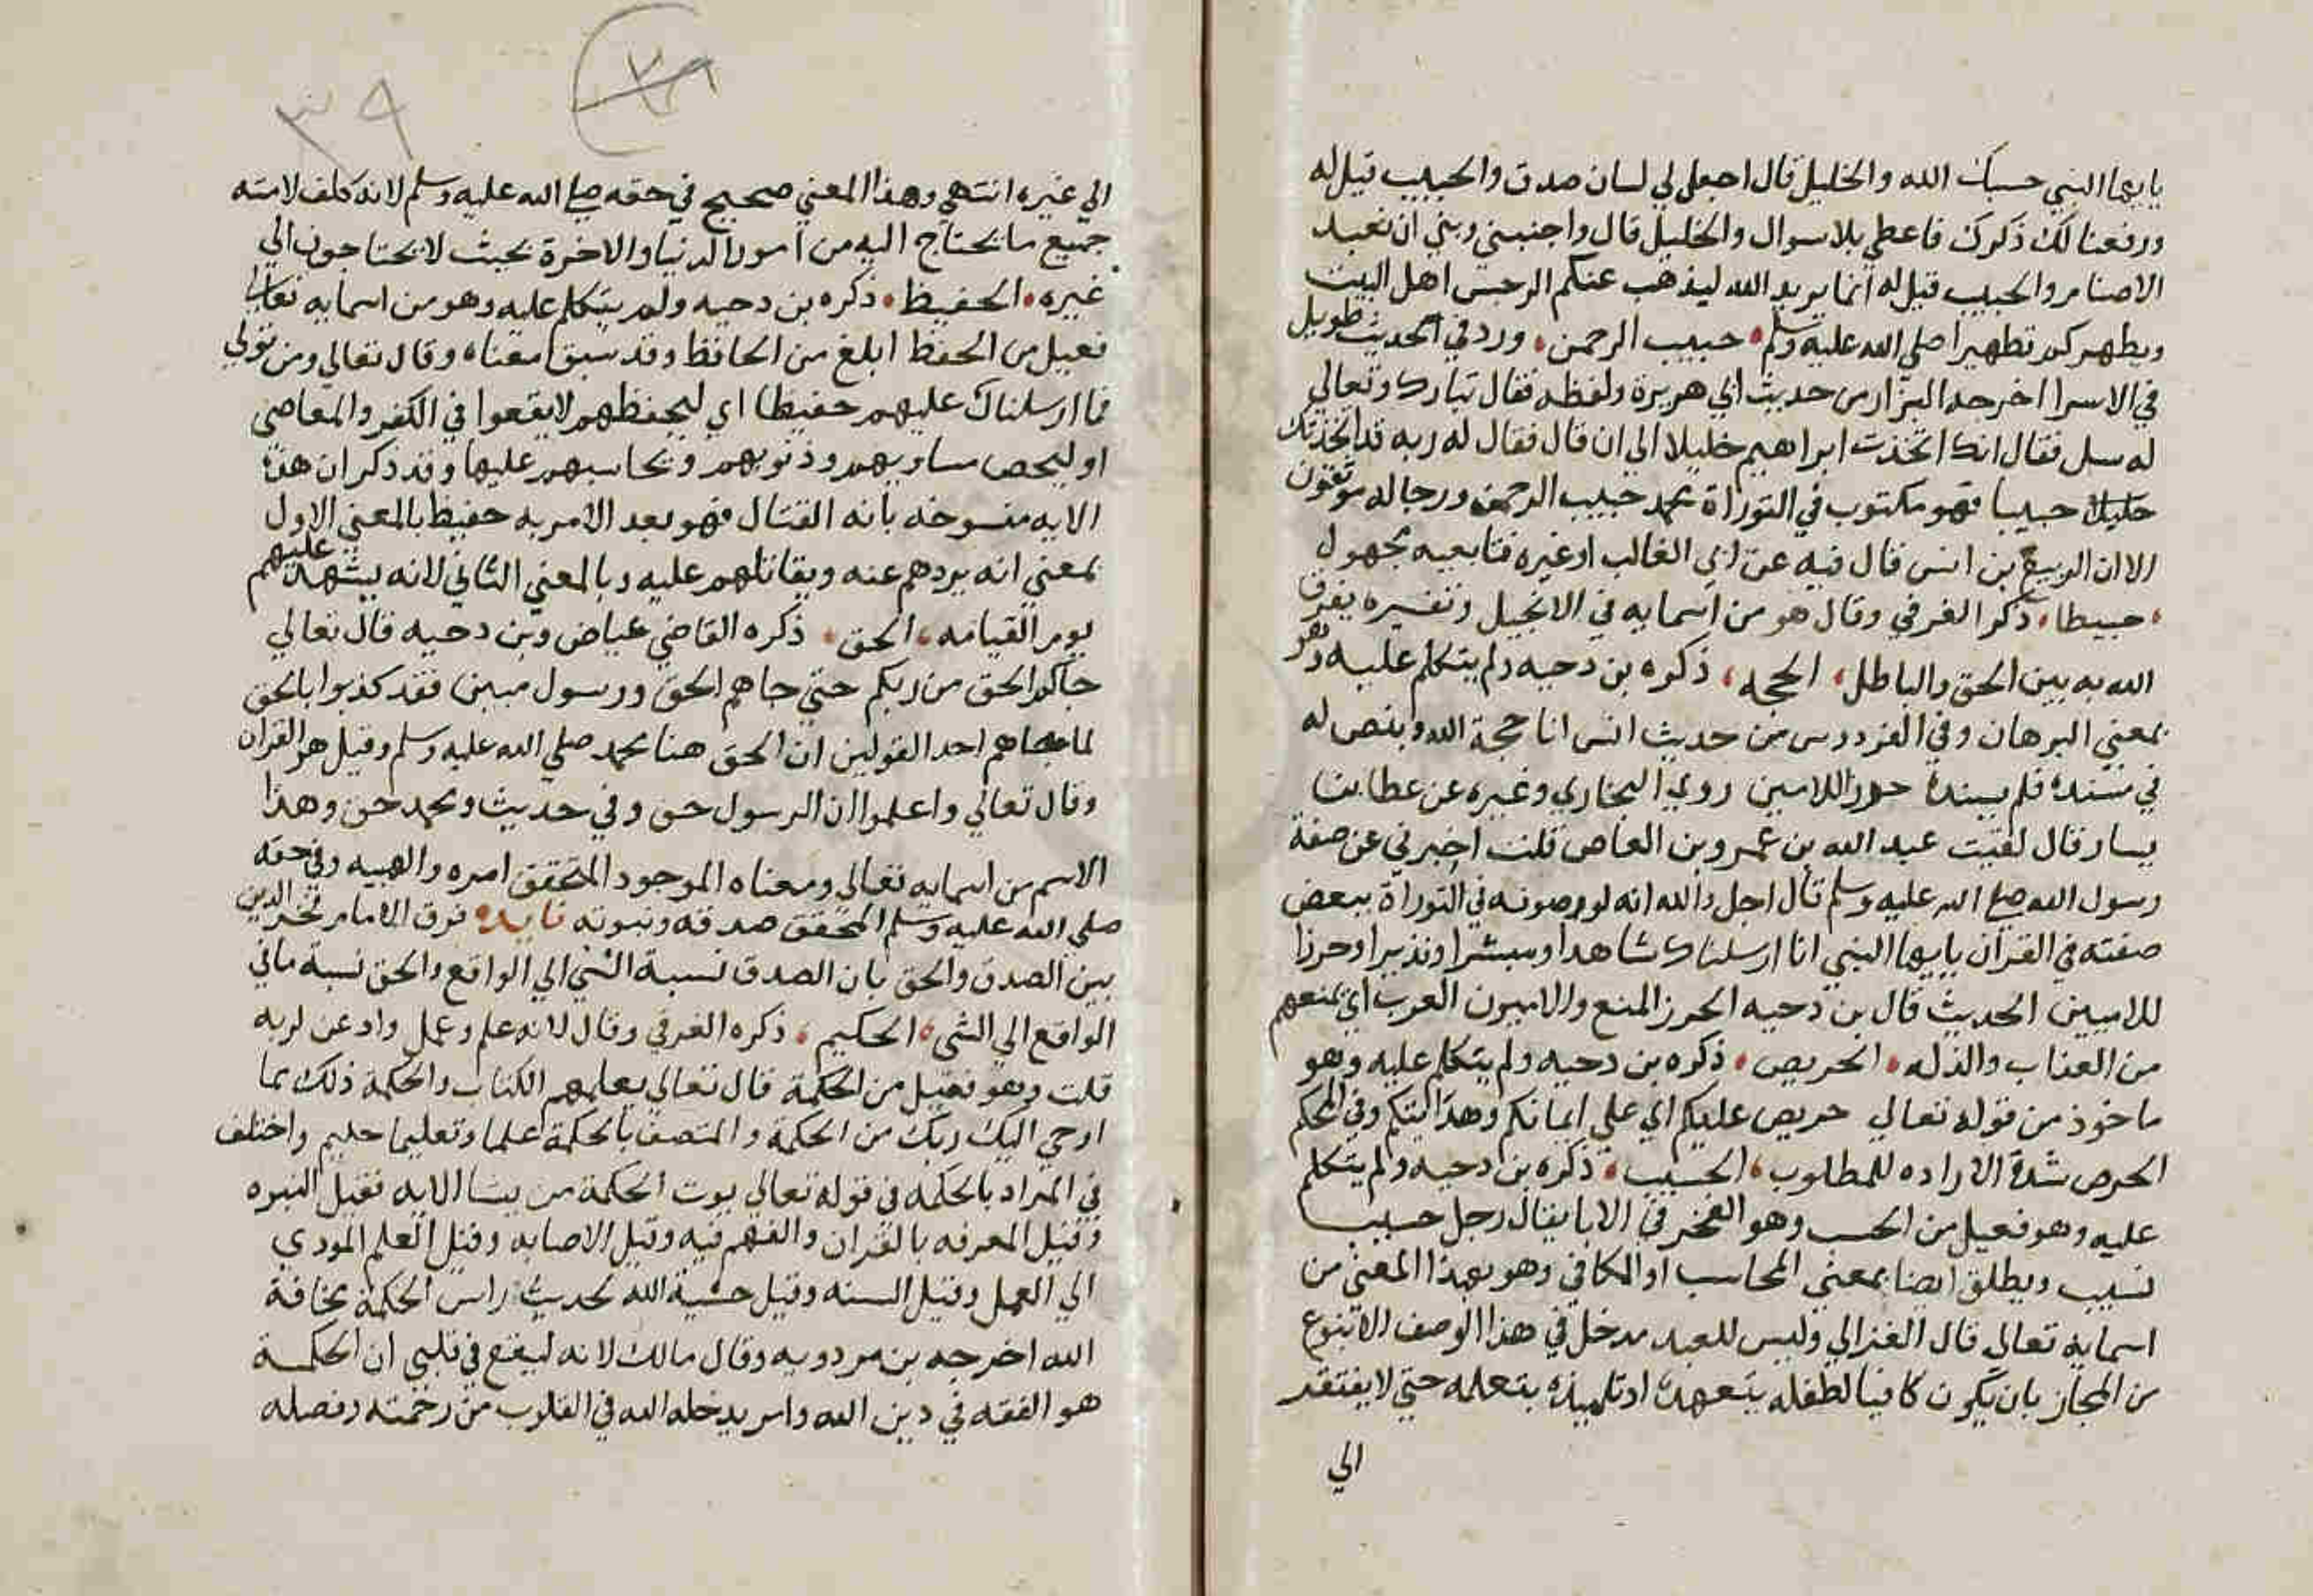 يايها النبي حسبك الله والخليل قال اجعل لي لسان صدق والحبيب قيل له
ورفعنا لك ذكرك فاعطي بلا سوال والخليل قال واجنبني وبني ان نعبد
الاصنام والحبيب قيل له انما يريد الله ليذهب عنكم الرجس اهل البيت
ويطهركم تطهيرا صلي الله عليه وسلم حبيب الرحمن ورد في الحديث طويل
في الاسرا اخرجه البزار من حديث ابي هريرة ولفظه فقال تبارك وتعالي
له سل فقال انك اتخذت ابراهيم خليلا الي ان قال فقال له ربه قد اتخذتك
حبيبا فهو مكتوب في التوراة محمد حبيب الرحمن ورجاله موثقون
الا ان الربيع بن انس قال فيه عن ابي الغالب او غيره فتابعيه مجهول
حبيطا ذكر الغرفي وقال هو من اسمايه في الانجيل وتفسيره يفرق
الله به بين الحق والباطل الحجه ذكره بن دحيه ولم يتكلم عليه وهو
بمعني البرهان وفي الفردوس من حديث انس انا حجة الله وبنص له
في سنده فلم يسنده حرزا للامين روي البخاري وغيره عن عطا بن
يسار قال لقيت عبد الله بن عمرو بن العاص قلت اخبرني عن صفة
رسول الله صلي الله عليه وسلم قال اجل والله انه لموصوفه في التوراة ببعض
صفته في القران يايها النبي انا ارسلناك شاهدا ومبشرا ونذيرا وحرزا
للاميين الحديث قال بن دحيه الحرز المنع والاميون العرب اي يمنعهم
من العذاب والذله الحريص ذكره بن دحيه ولم يتكلم عليه وهو
ماخوذ من قوله تعالي حريص عليكم اي علي ايمانكم وهدايتكم وفي المحكم
الحرص شدة الاراده للمطلوب الحسيب ذكره بن دحيه ولم يتكلم
عليه وهو فعيل من الحسب وهو الفخر في الابا يقال رجل حسيب
نسيب ويطلق ايضا بمعني المحاسب او المكافي وهو بهذا المعني من
اسمايه تعالي قال الغزالي وليس للعبد مدخل في هذا الوصف الا بنوع
من المجاز بان يكون كافيا لطفله بتعهده او تلميذه بتعلمه حتي لا يفتقر
الي
٣٩
الي غيره انتهي وهذا المعني صحيح في حقه صلي الله عليه وسلم لانه كلف لامته
جميع ما يحتاج اليه من امور الدنيا والاخرة بحيث لا يحتاجون الي
غيره الحفيظ ذكره بن دحيه ولم يتكلم عليه وهو من اسمايه تعالي
فعيل من الحفظ ابلغ من الحافظ وقد سبق معناه وقال تعالي ومن تولي
فما ارسلناك عليهم حفيظا اي ليحفظهم لا يقعوا في الكفر والمعاصي
او ليحصي مساويهم وذنوبهم ويحاسبهم عليها وقد ذكر ان هذه
الايه منسوخه بايه القتال فهو بعد الامر به حفيظ بالمعني الاول
بمعني انه يردهم عنه ويقاتلهم عليه وبالمعني الثاني لانه يشهد عليهم
يوم القيامه الحق ذكره القاضي عياض وبن دحيه قال تعالي
جاكم الحق من ربكم حتي جاهم الحق ورسول مبين فقد كذبوا بالحق
لما جاهم احد القولين ان الحق هنا محمد صلي الله عليه وسلم وقيل هو القران
وقال تعالي واعلموا ان الرسول حق وفي حديث ومحمد حق وهذا
الاسم من اسمايه تعالي ومعناه الموجود المتحقق امره والهيه وفي حقه
صلي الله عليه وسلم المتحقق صدقه ونبوته فايده فرق الامام فخر الدين
بين الصدق والحق بان الصدق نسبة الشي الي الواقع والحق نسبة ما في
الواقع الي الشي الحكيم ذكره الغرفي وقال لانه علم وعمل واذعن لربه
قلت وهو فعيل من الحكمة قال تعالي يعلمهم الكتاب والحكمة ذلك مما
اوحي اليك ربك من الحكمة والمتصف بالحكمة علما وتعليما حكيم واختلف
في المراد بالحكمه في قوله تعالي يوت الحكمة من يشا الايه فقيل النبوه
وقيل المعرفه بالقران والفهم فيه وقيل الاصابه وقيل العلم المودي
الي العمل وقيل السنه وقيل خشية الله لحديث راس الحكمة مخافة
الله اخرجه بن مردويه وقال مالك لانه ليقع في قلبي ان الحكمة
هو الفقه في دين الله وامر يدخله الله في القلوب من رحمته وفضله